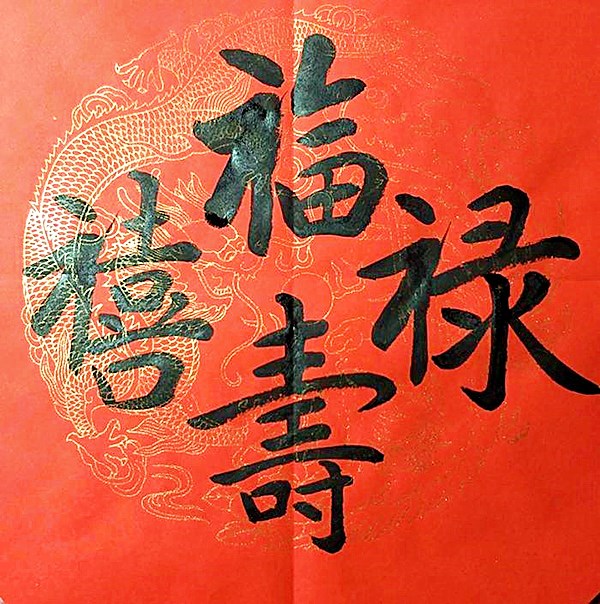 福
禄
壽
禧